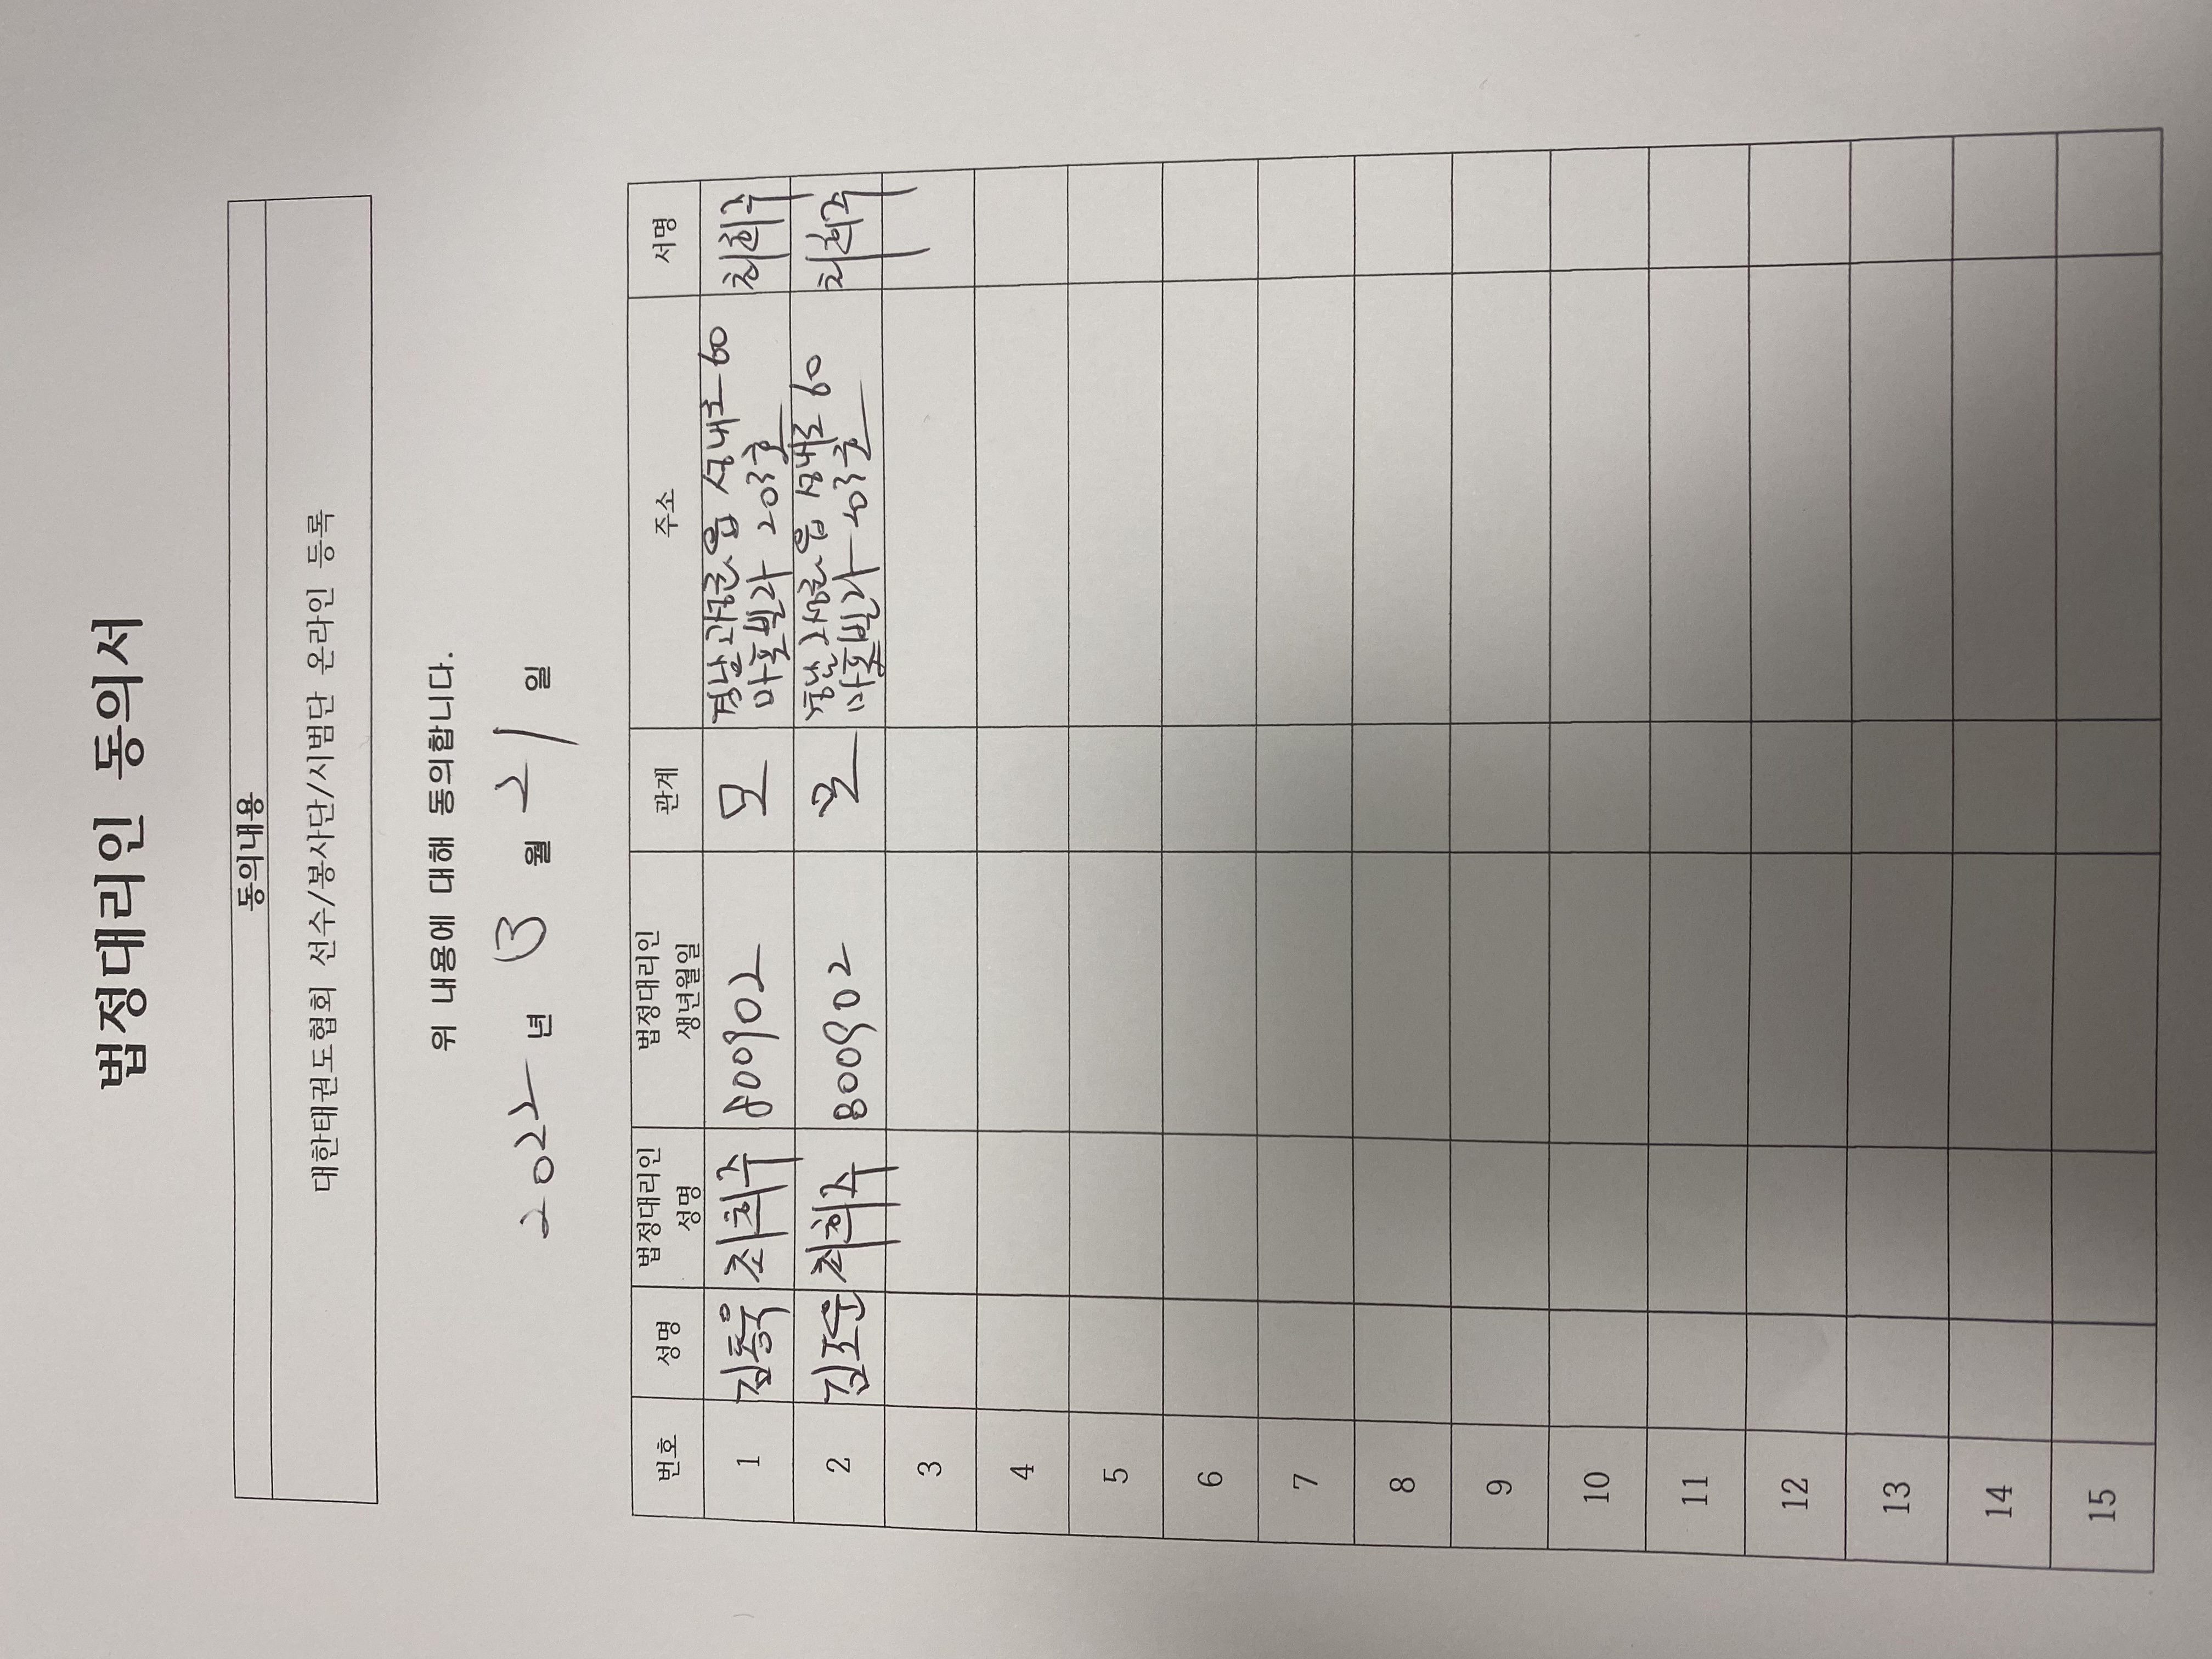 법정대리인 동의서
동의내용
대한태권도협회 선수/봉사단/시범단 온라인 등록
위 내용에 대해 동의합니다.
2022 년 3 월 21 일
번호 성명 법정대리인 성명 법정대리인 생년월일 관계 주소 서명
1 김동욱 최희주 800902 모 경남 고성군 고성읍 성내로 60
마포빌라 203호 최희주
2 김조운 최희주 800902 모 경남 고성읍 성내로 60
마포빌라 203호 최희주
3
4
5
6
7
8
9
10
11
12
13
14
15